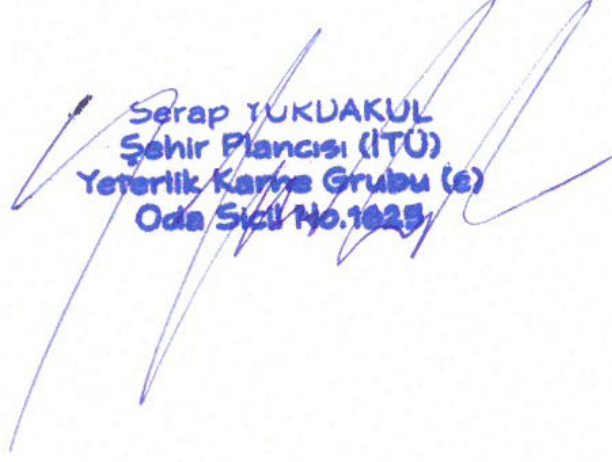 Serap YURDAKUL
Şehir Plancısı (İTÜ)
Yeterlik Karne Grubu (e)
Oda Sicil No.1825